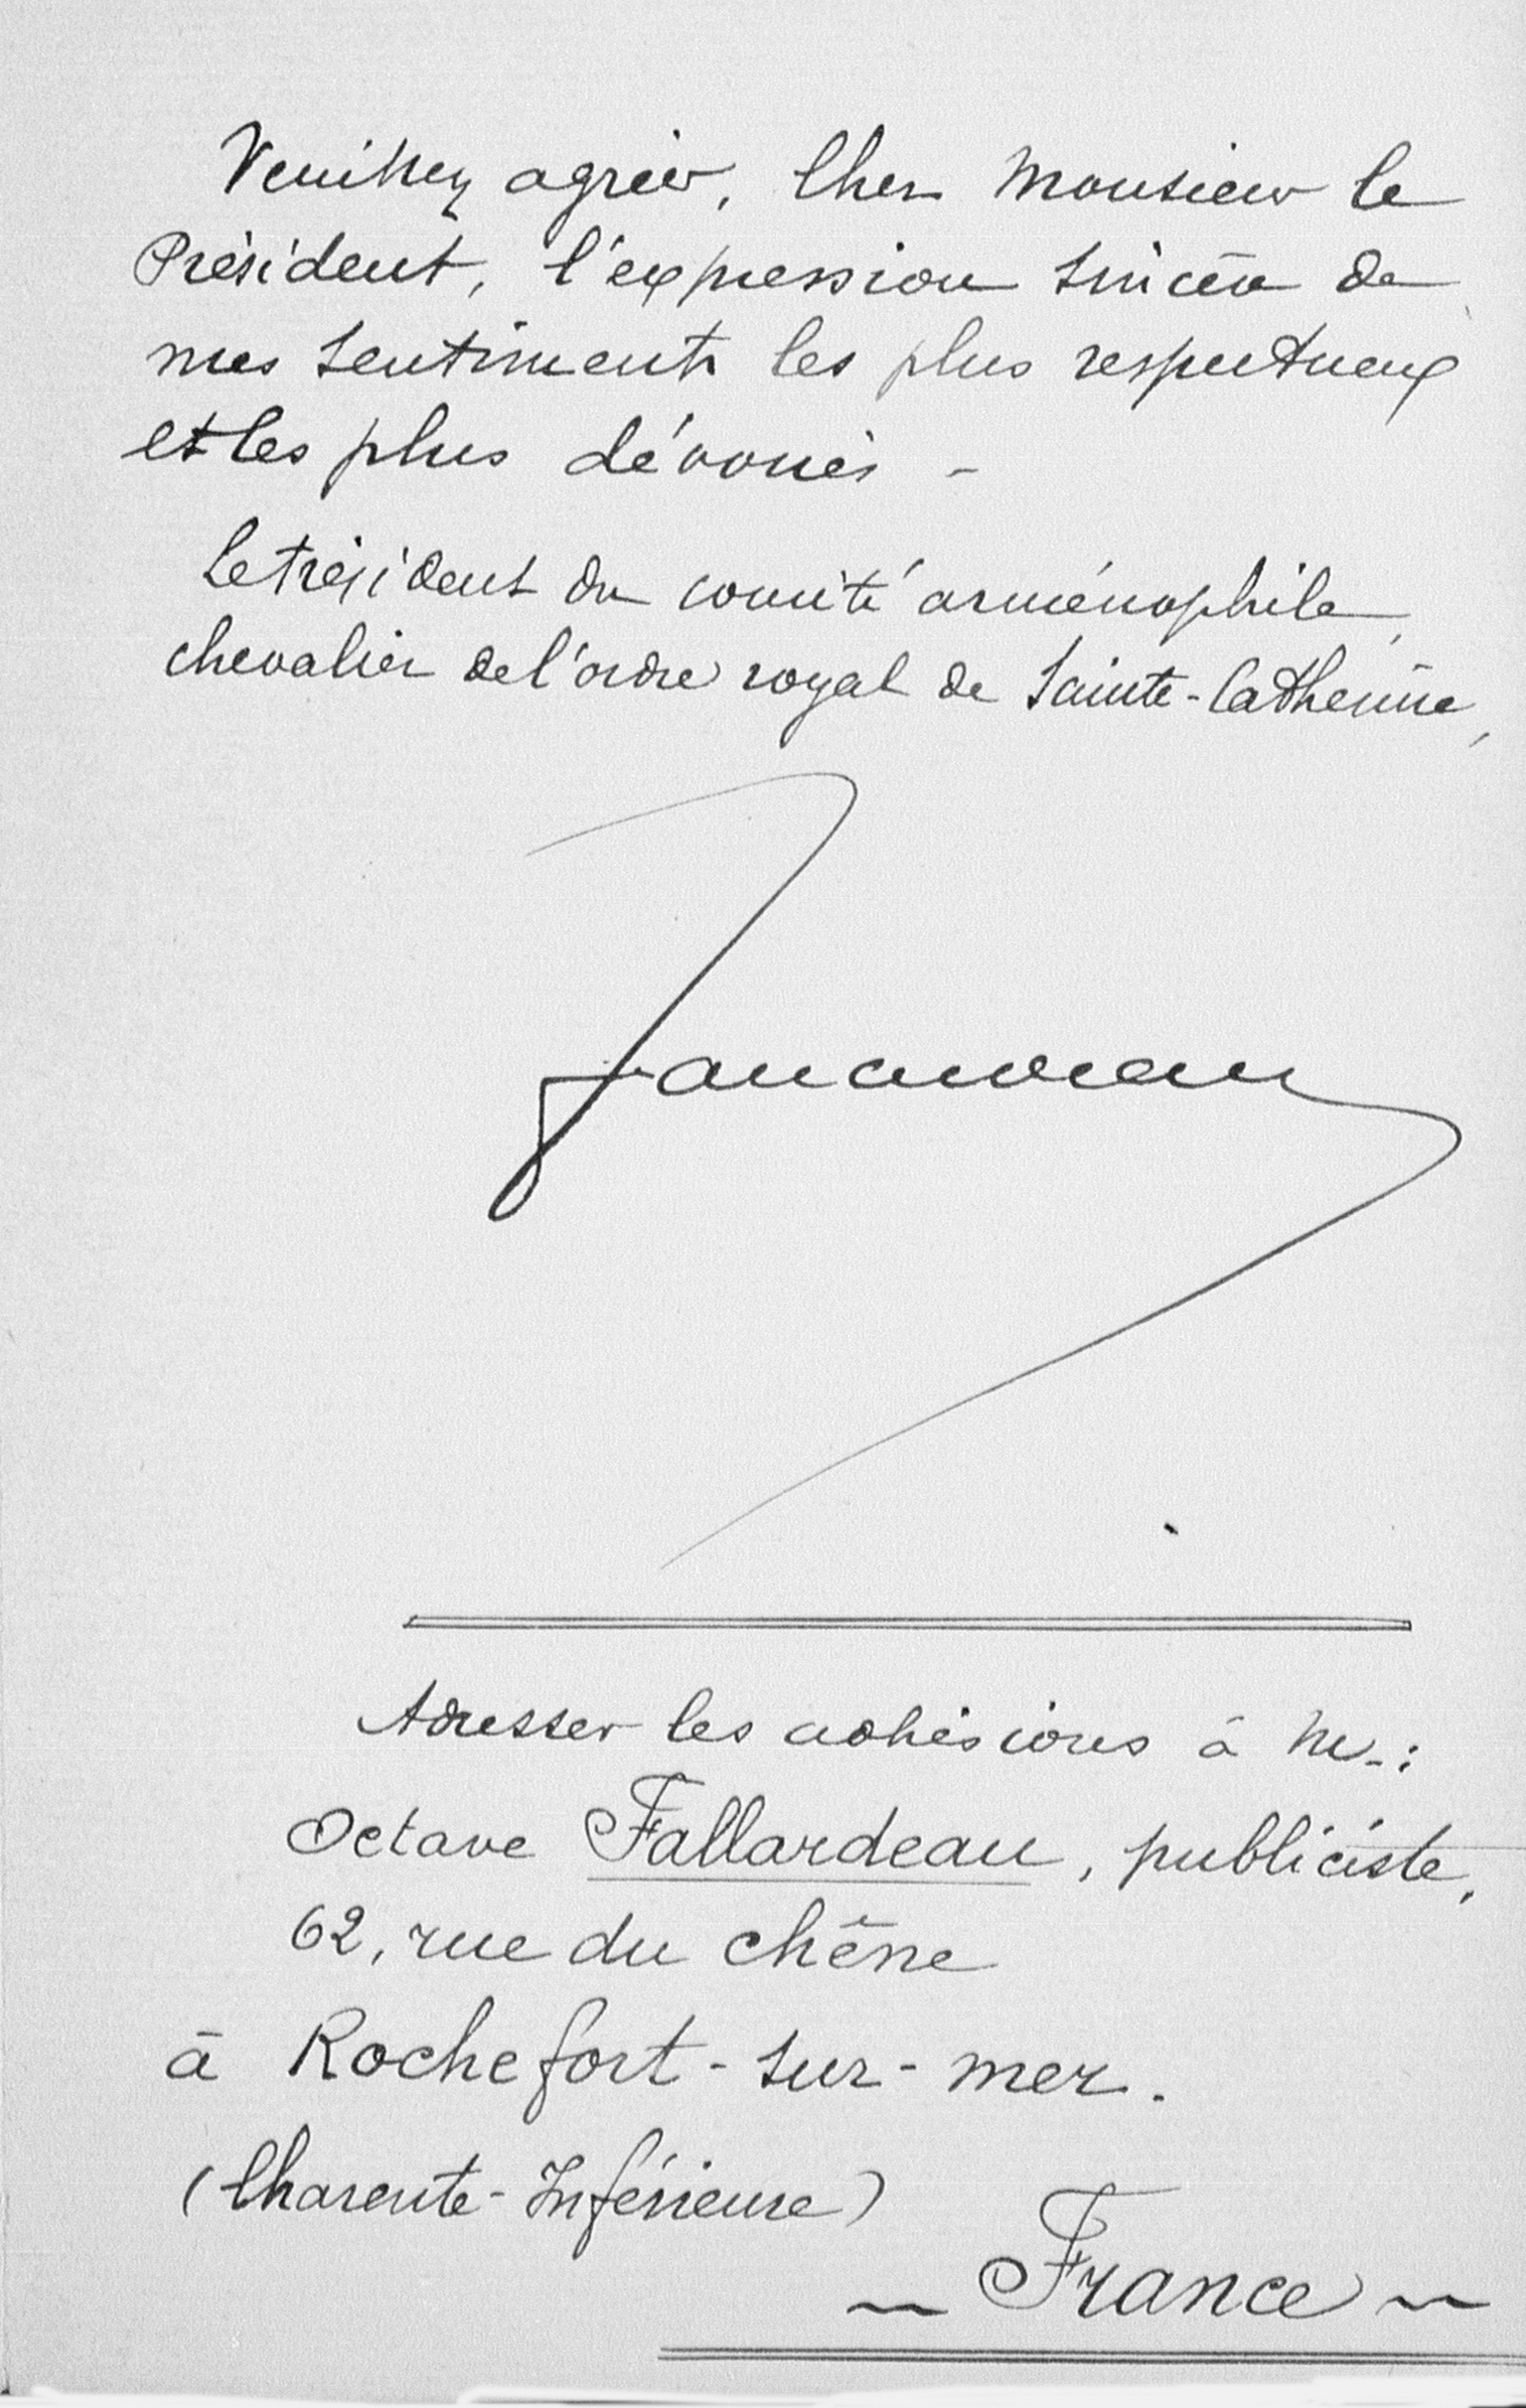 Veuillez agréer, Cher Monsieur le
Président, l'expression sincère de
mes sentiments les plus respectueux
et les plus dévoués -
Le Président du comité arménophile,
chevalier de l'ordre royal de Sainte-Catherine,
Adresser les adhésions à M. :
Octave Fallardeau, publiciste,
62, rue du chêne
à Rochefort-sur-mer.
(Charente-Inférieure)
~ France ~